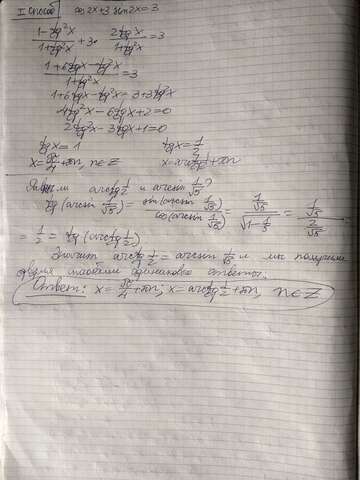 II способ cos2x+3sin2x=3
(1-tg²x)/(1+tg²x)+3·(2tgx)/(1+tg²x)=3
(1+6tgx-tg²x)/(1+tg²x)=3
1+6tgx-tg²x=3+3tg²x
4tg²x-6tgx+2=0
2tg²x-3tgx+1=0
tgx=1 tgx=1/2
x=π/4+πn, n∈Z x=arctg1/2+πn
arctg 1/2 и arcsin 1/√5?
tg(arcsin 1/√5)=sin(arcsin 1/√5)/cos(arcsin 1/√5)=(1/√5)/√(1-1/5)=(1/√5)/(2/√5)=
=1/2=tg(arctg 1/2)
Значит arctg 1/2=arcsin 1/√5 и мы получили
двумя способами одинаковые ответы.
Ответ: x=π/4+πn; x=arctg 1/2+πn, n∈Z